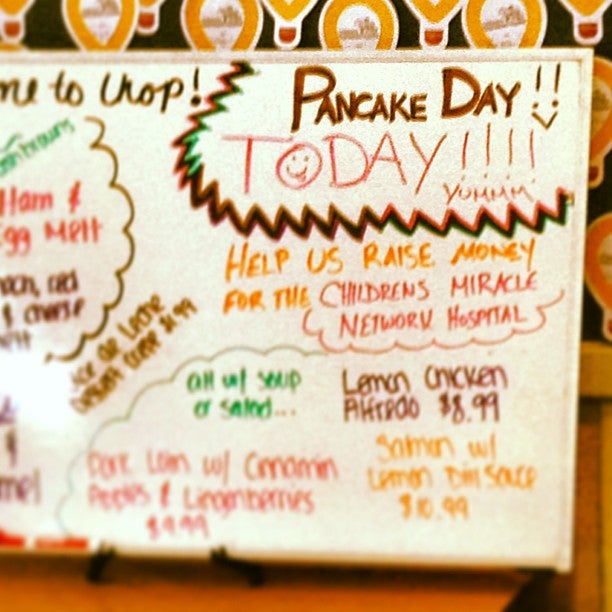 me to Ihop!
PANCAKE DAY!!
TODAY!!!!
YUMMM
Ham &
Egg Melt
HELP US RAISE MONEY
FOR THE CHILDRENS MIRACLE
NETWORK HOSPITAL
& cheese
de Leche
Crepe $4.99
all w/ soup
or salad...
Lemon Chicken
Alfredo $8.99
Pork Loin w/ Cinnamin
Apples & Lingenberries
$9.99
Salmon w/
Lemon Dill Sauce
$10.99
&
mel